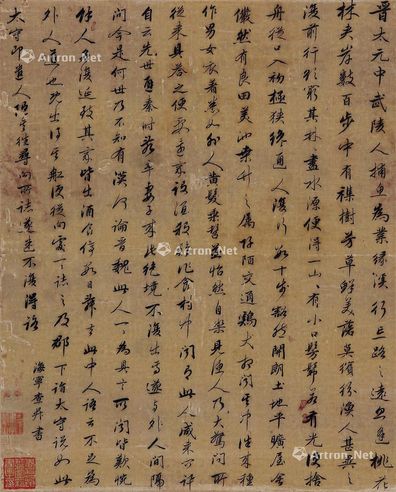 晉太元中武陵人捕魚為業緣溪行忘路之遠忽逢桃花
林夾岸數百步中有雜樹芳草鮮美落英繽紛漁人甚異之
復前行欲窮其林盡水源便得一山山有小口髣髴若有光便捨
舟從口入初極狹纔通人復行數十步豁然開朗土地平曠屋舍
儼然有良田美池桑竹之屬阡陌交通雞犬相聞其中往來種
作男女衣著悉如外人黃髮垂髫並怡然自樂見漁人乃大驚問所
從來具答之便要還家設酒殺雞作食村中聞有此人咸來
自云先世避秦時亂率妻子來此絕境不復出焉遂與外人間隔
問今是何世乃不知有漢何論晉魏此人一一為具言所聞皆歎惋
餘人各復延致其家皆出酒食停數日辭去此中人語云不足為
外人道也既出得其船便從向處一一誌之及郡下詣太守說如此
太守即遣人隨其往尋向所誌遂迷不復得路
海寧查昇書
Artron.Net